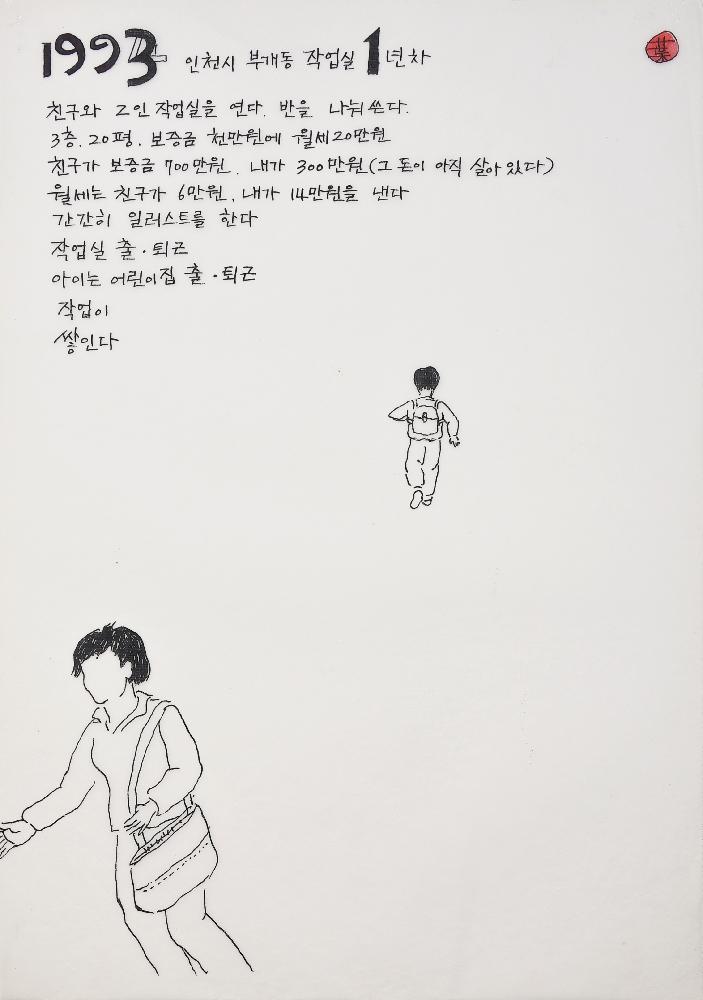 1993 인천시 부개동 작업실 1년차
친구와 2인 작업실을 연다. 반을 나눠 쓴다.
3층. 20평. 보증금 천만원에 월세 20만원
친구가 보증금 700만원. 내가 300만원(그 돈이 아직 살아 있다)
월세는 친구가 6만원. 내가 14만원을 낸다
간간히 일러스트를 한다
작업실 출·퇴근
아이는 어린이집 출·퇴근
작업이
쌓인다
葉